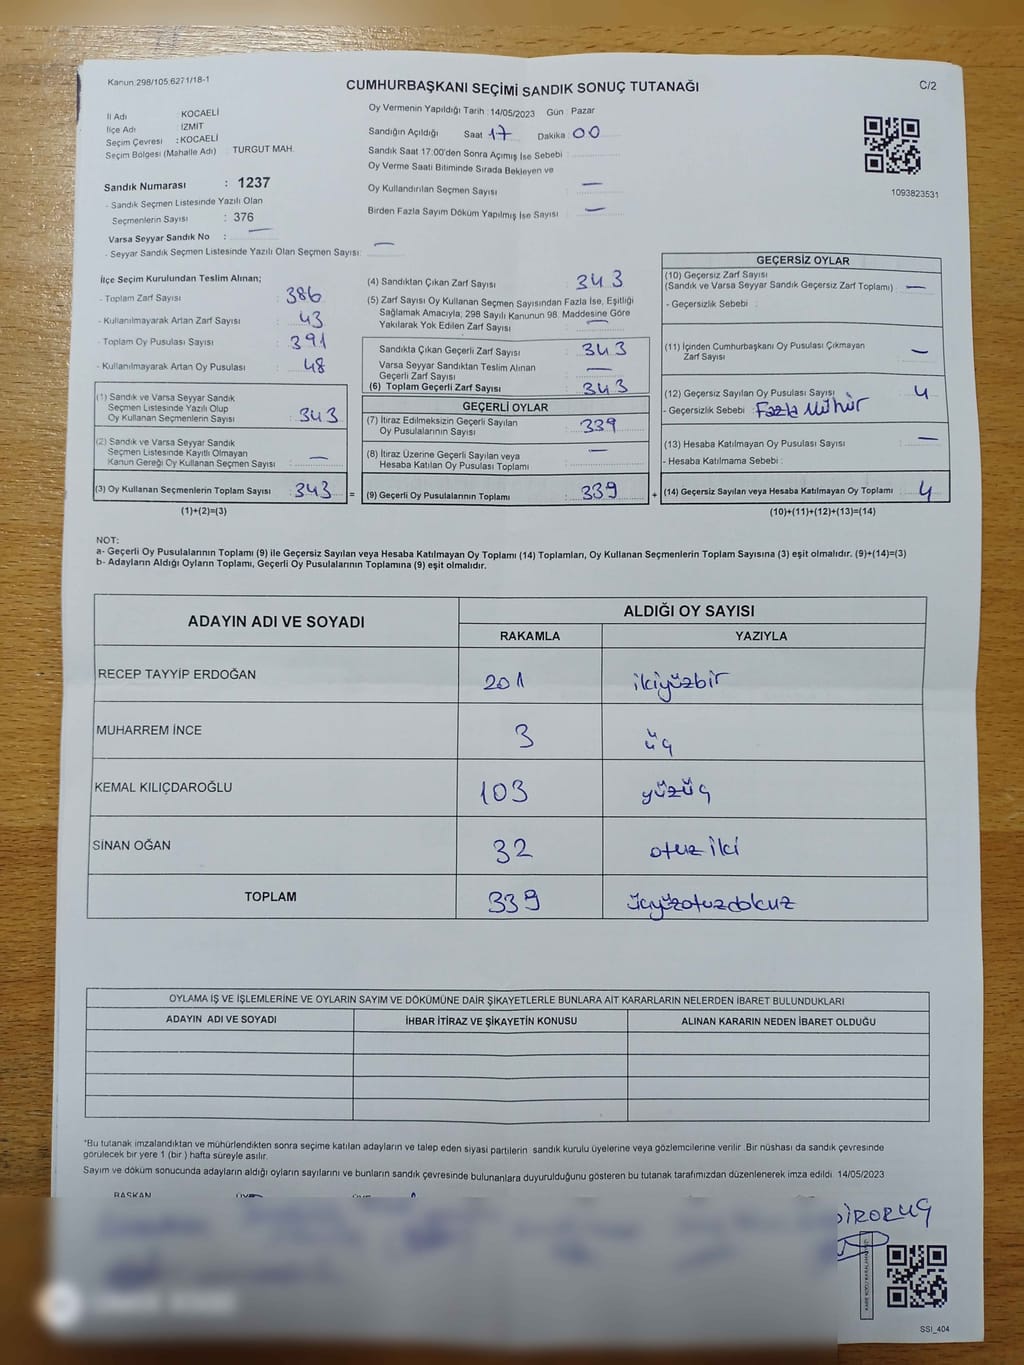 Kanun 298/105 6271/18-1
CUMHURBAŞKANI SEÇİMİ SANDIK SONUÇ TUTANAĞI
C/2
İl Adı : KOCAELİ
İlçe Adı : İZMİT
Seçim Çevresi : KOCAELİ
Seçim Bölgesi (Mahalle Adı) : TURGUT MAH.
Sandık Numarası : 1237
- Sandık Seçmen Listesinde Yazılı Olan
Seçmenlerin Sayısı : 376
Varsa Seyyar Sandık No : —
- Seyyar Sandık Seçmen Listesinde Yazılı Olan Seçmen Sayısı: —
Oy Vermenin Yapıldığı Tarih : 14/05/2023 Gün : Pazar
Sandığın Açıldığı Saat 17 Dakika : 00
Sandık Saat 17:00'den Sonra Açımış İse Sebebi :
Oy Verme Saati Bitiminde Sırada Bekleyen ve
Oy Kullandırılan Seçmen Sayısı : —
Birden Fazla Sayım Döküm Yapılmış İse Sayısı : —
1093823531
İlçe Seçim Kurulundan Teslim Alınan;
- Toplam Zarf Sayısı : 386
- Kullanılmayarak Artan Zarf Sayısı : 43
- Toplam Oy Pusulası Sayısı : 391
- Kullanılmayarak Artan Oy Pusulası : 48
(1) Sandık ve Varsa Seyyar Sandık
Seçmen Listesinde Yazılı Olup
Oy Kullanan Seçmenlerin Sayısı : 343
(2) Sandık ve Varsa Seyyar Sandık
Seçmen Listesinde Kayıtlı Olmayan
Kanun Gereği Oy Kullanan Seçmen Sayısı : —
(3) Oy Kullanan Seçmenlerin Toplam Sayısı : 343
(1)+(2)=(3)
=
(4) Sandıktan Çıkan Zarf Sayısı : 343
(5) Zarf Sayısı Oy Kullanan Seçmen Sayısından Fazla İse, Eşitliği
Sağlamak Amacıyla; 298 Sayılı Kanunun 98. Maddesine Göre
Yakılarak Yok Edilen Zarf Sayısı : —
Sandıkta Çıkan Geçerli Zarf Sayısı : 343
Varsa Seyyar Sandıktan Teslim Alınan
Geçerli Zarf Sayısı : —
(6) Toplam Geçerli Zarf Sayısı : 343
GEÇERLİ OYLAR
(7) İtiraz Edilmeksizin Geçerli Sayılan
Oy Pusulalarının Sayısı : 339
(8) İtiraz Üzerine Geçerli Sayılan veya
Hesaba Katılan Oy Pusulası Toplamı : —
(9) Geçerli Oy Pusulalarının Toplamı : 339
+
GEÇERSİZ OYLAR
(10) Geçersiz Zarf Sayısı
(Sandık ve Varsa Seyyar Sandık Geçersiz Zarf Toplamı) : —
- Geçersizlik Sebebi :
(11) İçinden Cumhurbaşkanı Oy Pusulası Çıkmayan
Zarf Sayısı : —
(12) Geçersiz Sayılan Oy Pusulası Sayısı : 4
- Geçersizlik Sebebi : Fazla Mühür
(13) Hesaba Katılmayan Oy Pusulası Sayısı : —
- Hesaba Katılmama Sebebi :
(14) Geçersiz Sayılan veya Hesaba Katılmayan Oy Toplamı : 4
(10)+(11)+(12)+(13)=(14)
NOT:
a- Geçerli Oy Pusulalarının Toplamı (9) ile Geçersiz Sayılan veya Hesaba Katılmayan Oy Toplamı (14) Toplamları, Oy Kullanan Seçmenlerin Toplam Sayısına (3) eşit olmalıdır. (9)+(14)=(3)
b- Adayların Aldığı Oyların Toplamı, Geçerli Oy Pusulalarının Toplamına (9) eşit olmalıdır.
ADAYIN ADI VE SOYADI ALDIĞI OY SAYISI
RAKAMLA YAZIYLA
RECEP TAYYİP ERDOĞAN 201 ikiyüzbir
MUHARREM İNCE 3 üç
KEMAL KILIÇDAROĞLU 103 yüzüç
SİNAN OĞAN 32 otuz iki
TOPLAM 339 üçyüzotuzdokuz
OYLAMA İŞ VE İŞLEMLERİNE VE OYLARIN SAYIM VE DÖKÜMÜNE DAİR ŞİKAYETLERLE BUNLARA AİT KARARLARIN NELERDEN İBARET BULUNDUKLARI
ADAYIN ADI VE SOYADI İHBAR İTİRAZ VE ŞİKAYETİN KONUSU ALINAN KARARIN NEDEN İBARET OLDUĞU
*Bu tutanak imzalandıktan ve mühürlendikten sonra seçime katılan adayların ve talep eden siyasi partilerin sandık kurulu üyelerine veya gözlemcilerine verilir. Bir nüshası da sandık çevresinde
görülecek bir yere 1 (bir ) hafta süreyle asılır.
Sayım ve döküm sonucunda adayların aldığı oyların sayılarını ve bunların sandık çevresinde bulunanlara duyurulduğunu gösteren bu tutanak tarafımızdan düzenlenerek imza edildi. 14/05/2023
BAŞKAN
SSI_404